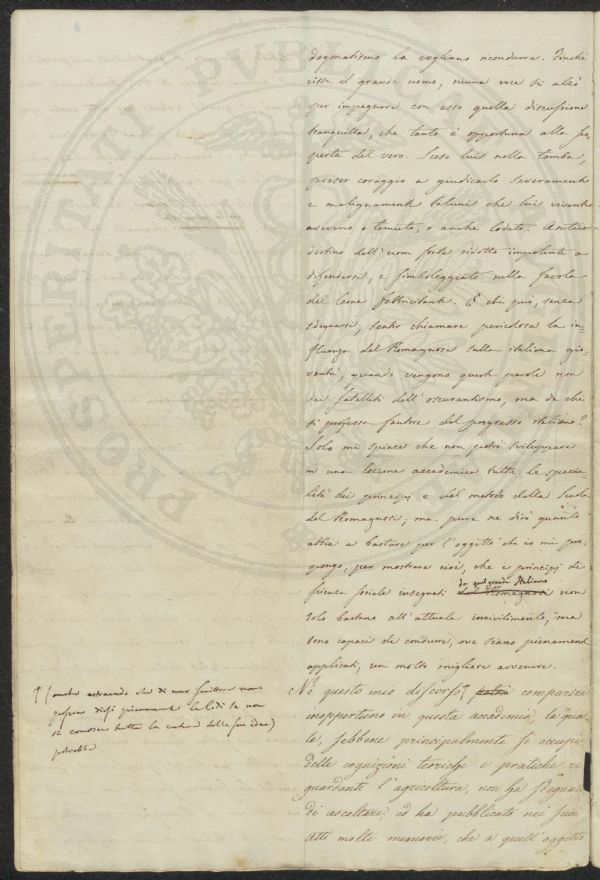 8
PROSPERITATI PUBLICAE
dogmatismo la vogliano ricondurre. Finchè
visse il grand' uomo, niuna voce si alzò
per impegnare con esso quella discussione
tranquilla, che tanto è opportuna alla sco-
perta del vero. Sceso lui nella tomba,
preser coraggio a giudicarlo severamente
e malignamente taluni che lui vivente
avevano o temuto, o anche lodato.
destino dell'uom forte ridotto impotente a
difendersi, e simboleggiato nella favola
del leone febbricitante. E chi può, senza
sdegnarsi, sentir chiamare pericolosa la in-
fluenza del Romagnosi sulla italiana gio-
ventù, quando vengono queste parole non
da satelliti dell'oscurantismo, ma da chi
si professa fautore del progresso italiano?
Solo mi spiace che non potrò sviluppare
in una lezione accademica tutte le specia-
lità dei principj e del metodo della scuola
del Romagnosi; ma pure ne dirò quanto
abbia a bastare per l'oggetto che io mi pro-
pongo, per mostrare cioè, che i principj di
da quel grande Italiano
scienza sociale insegnati dal Romagnosi non
solo bastano all'attuale incivilimento, ma
sono capaci di condurre, ove siano pienamente
applicati, un molto migliore avvenire.
Nè questo mio discorso† potrà comparire
inopportuno in questa accademia, la qua-
le, sebbene principalmente si occupi
delle cognizioni teoriche e pratiche ri-
guardanti l'agricoltura, non ha sdegnato
di ascoltare, ed ha pubblicato nei suoi
Atti molte memorie, che a quell'oggetto
† (anche astraendo che di uno scrittore non
possono dirsi pienamente le lodi se non
si conosce tutta la catena delle sue idee)
potrebbe